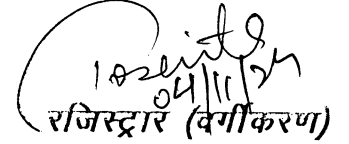 04/11/24
रजिस्ट्रार (वर्गीकरण)